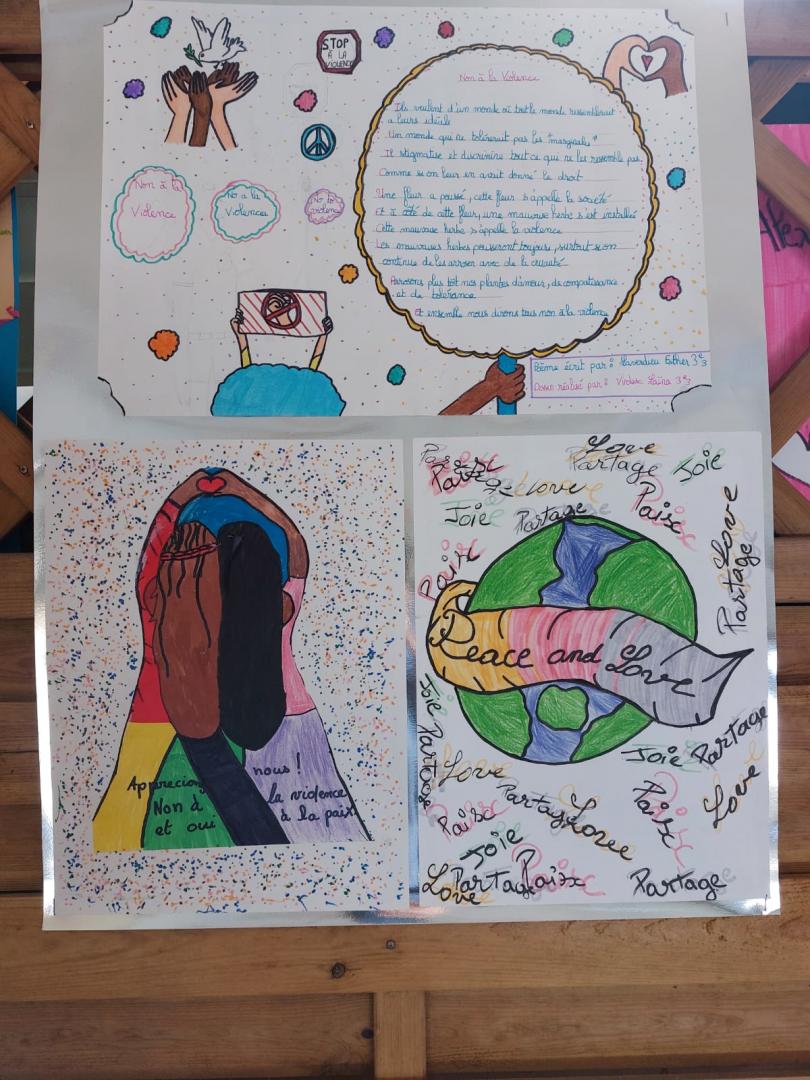 STOP
À LA
VIOLENCE
Non à la
Violence
No a la
Violencea
No to
violence
Non à la Violence
Ils veulent d'un monde où tout le monde ressemblerait
a leurs idéale
Un monde qui ne tolérerait pas les "marginales"
Il stigmatise et discrimine tout ce qui ne les ressemble pas.
Comme si on leur en avait donné le droit
Une fleur a poussé, cette fleur s'appelle la société
Et à côté de cette fleur, une mauvaise herbe s'est installée
Cette mauvaise herbe s'appelle la violence
Les mauvaises herbes pousseront toujours, surtout si on
continue de les arroser avec de la cruauté
Arrosons plus tôt nos plantes d'amour, de compatissance
et de tolérance
Et ensemble nous dirons tous non à la violence
Poème écrit par : Esther 3e3
Dessin réalisé par : Laïna 3e3
Apprecions nous !
Non à la violence
et oui à la paix
Love
Partage
Joie
Love
Partage
Joie
Partage
Paix
Paix
Love
Partage
Peace and Love
Joie
Partage
Joie
Partage
Love
Love
Partage
Love
Paix
Paix
Joie
Love
Partage
Paix
Partage